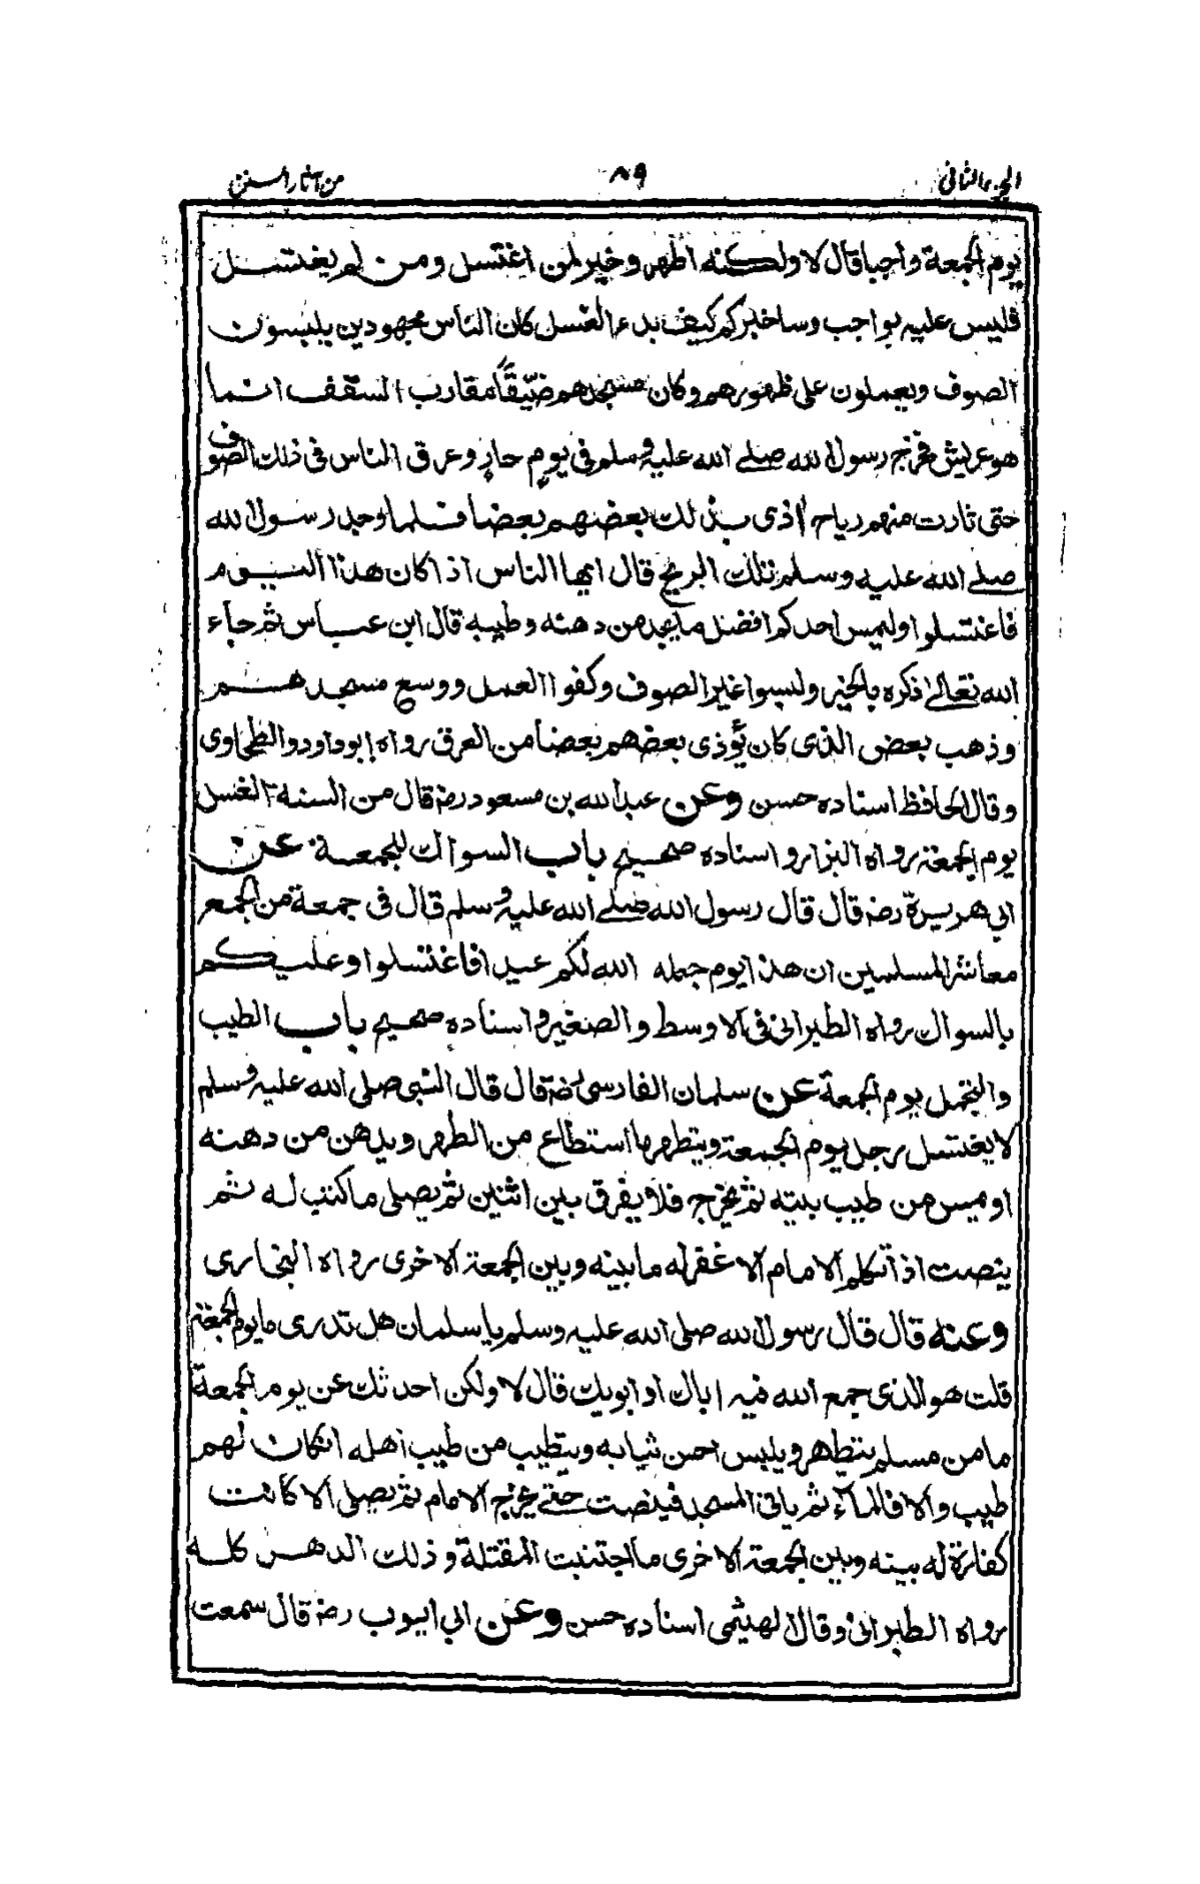 الجزء الثاني ٨٩ من آثار السنن
يوم الجمعة واجبا قال لا ولكنه اطهر وخير لمن اغتسل ومن لم يغتسل
فليس عليه بواجب وساخبركم كيف بدء الغسل كان الناس مجهودين يلبسون
الصوف ويعملون على ظهورهم وكان مسجدهم ضيّقًا مقارب السقف انما
هو عريش فخرج رسول الله صلے الله عليه وسلم في يوم حارٍ وعرق الناس في ذلك الصوف
حتى ثارت منهم رياح اذى بذلك بعضهم بعضا فلما وجد رسول الله
صلے الله عليه وسلم تلك الريح قال ايها الناس اذا كان هذا اليوم
فاغتسلوا وليمس احدكم افضل ما يجد من دهنه وطيبه قال ابن عباس ثم جاء
الله تعالےٰ ذكره بالخير ولبسوا غير الصوف وكفوا العمل ووسع مسجدهم
وذهب بعض الذى كان يؤذى بعضهم بعضا من العرق رواه ابو داود والطحاوى
وقال الحافظ اسناده حسن وعن عبد الله بن مسعود رضـ قال من السنة الغسل
يوم الجمعة رواه البزار واسناده صحيح باب السواك للجمعة عن
ابي هريرة رضـ قال قال رسول الله صلے الله عليه وسلم قال في جمعة من الجمع
معاشر المسلمين ان هذا يوم جعله الله لكم عيدا فاغتسلوا وعليكم
بالسواك رواه الطبراني في الاوسط والصغير واسناده صحيح باب الطيب
والتجمل يوم الجمعة عن سلمان الفارسي رضـ قال قال النبي صلى الله عليه وسلم
لا يغتسل رجل يوم الجمعة ويتطهر ما استطاع من الطهر ويدهن من دهنه
او يمس من طيب بيته ثم يخرج فلا يفرق بين اثنين ثم يصلى ما كتب له ثم
ينصت اذا تكلم الامام الا غفر له ما بينه وبين الجمعة الاخرى رواه البخارى
وعنه قال قال رسول الله صلى الله عليه وسلم يا سلمان هل تدرى ما يوم الجمعة
قلت هو الذى جمع الله فيه اباك او ابويك قال لا ولكن احدثك عن يوم الجمعة
ما من مسلم يتطهر ويلبس احسن ثيابه ويتطيب من طيب اهله ان كان لهم
طيب والا فالماء ثم ياتي المسجد فينصت حتى يخرج الامام ثم يصلى الا كانت
كفارة له بينه وبين الجمعة الاخرى ما اجتنبت المقتلة وذلك الدهر كله
رواه الطبراني وقال الهيثمى اسناده حسن وعن ابي ايوب رضـ قال سمعت